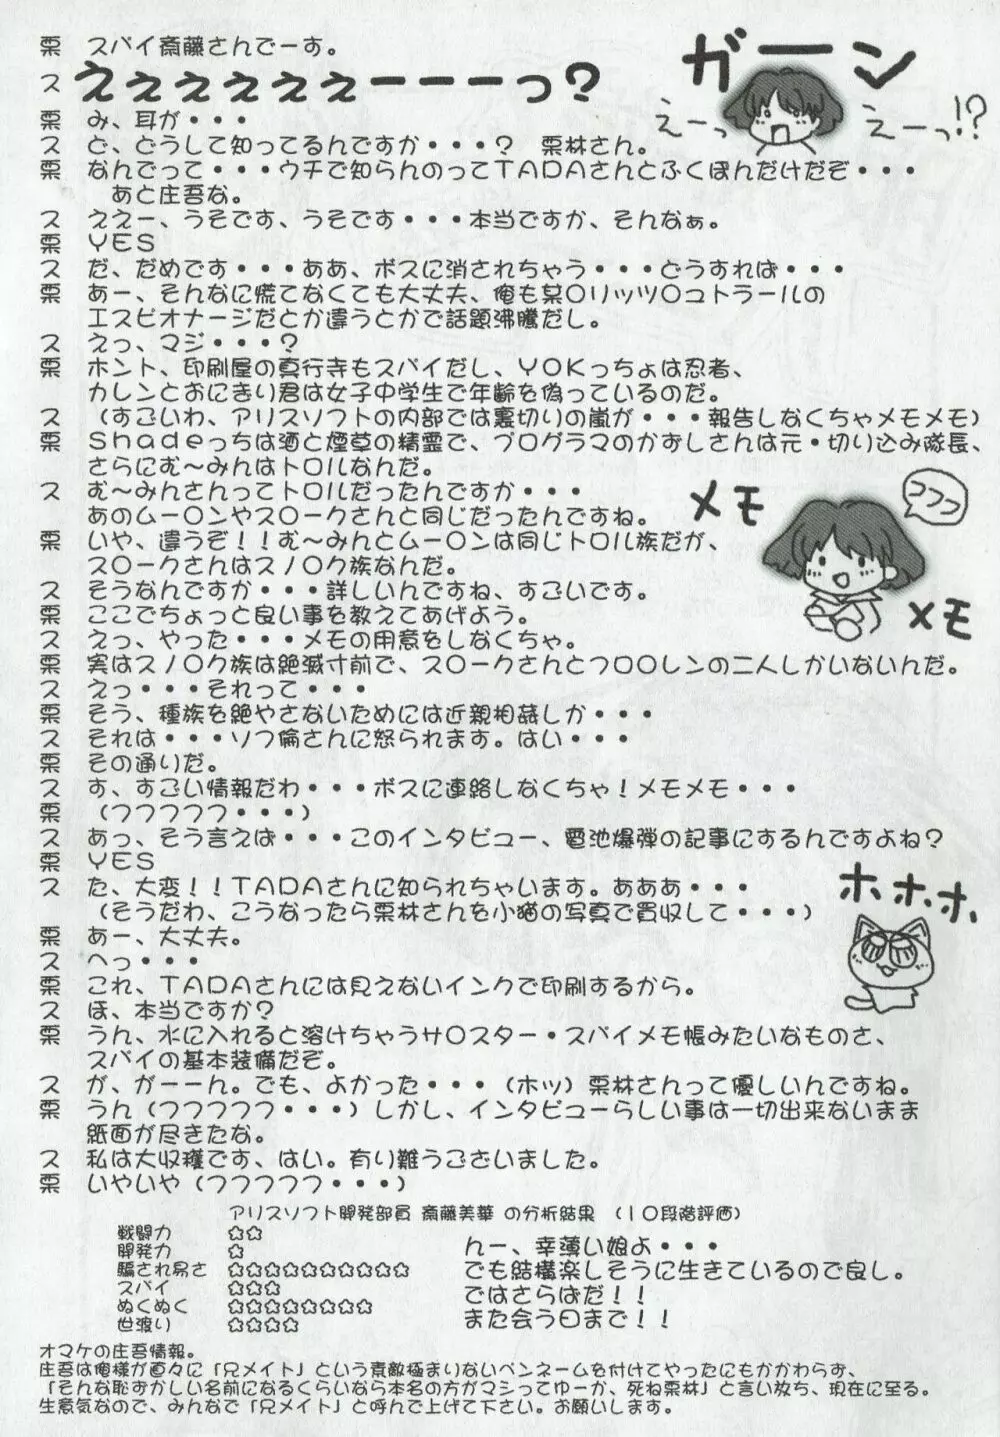 栗 スパイ斎藤さんでーす。
ス えぇぇぇぇぇーーーっ?
ガーン
えーっ
えーっ!?
栗 み、耳が・・・
ス ど、どうして知ってるんですか・・・? 栗林さん。
栗 なんでって・・・ウチで知らんのってTADAさんとふくぽんだけだぞ・・・
あと庄吾な。
ス ええー、うそです、うそです・・・本当ですか、そんなぁ。
栗 YES
ス だ、だめです・・・ああ、ボスに消されちゃう・・・どうすれば・・・
栗 あー、そんなに慌てなくても大丈夫、俺も某〇リッツ〇コトラールの
エスピオナージだとか違うとかで話題沸騰だし。
ス えっ、マジ・・・?
栗 ホント、印刷屋の真行寺もスパイだし、YOKっちょは忍者、
カレンとおにぎり君は女子中学生で年齢を偽っているのだ。
ス (すごいわ、アリスソフトの内部では裏切りの嵐が・・・報告しなくちゃメモメモ)
栗 Shadeっちは酒と煙草の精霊で、プログラマのかずしさんは元・切り込み隊長、
さらにむ〜みんはトロルなんだ。
ス む〜みんさんってトロルだったんですか・・・
あのムー〇ンやス〇ークさんと同じだったんですね。
栗 いや、違うぞ!!む〜みんとムー〇ンは同じトロル族だが、
ス〇ークさんはスノ〇ク族なんだ。
メモ
フフフ
メモ
ス そうなんですか・・・詳しいんですね、すごいです。
栗 ここでちょっと良い事を教えてあげよう。
ス えっ、やった・・・メモの用意をしなくちゃ。
栗 実はスノ〇ク族は絶滅寸前で、ス〇ークさんとフロ〇レンの二人しかいないんだ。
ス えっ・・・それって・・・
栗 そう、種族を絶やさないためには近親相姦しか・・・
ス それは・・・ソフ倫さんに怒られます。はい・・・
栗 その通りだ。
ス す、すごい情報だわ・・・ボスに連絡しなくちゃ!メモメモ・・・
栗 (フフフフフ・・・)
ス あっ、そう言えば・・・このインタビュー、電池爆弾の記事にするんですよね?
栗 YES
ス た、大変!!TADAさんに知られちゃいます。あああ・・・
(そうだわ、こうなったら栗林さんを小猫の写真で買収して・・・)
ホホホ、
栗 あー、大丈夫。
ス へっ・・・
栗 これ、TADAさんには見えないインクで印刷するから。
ス ほ、本当ですか?
栗 うん、水に入れると溶けちゃうサ〇スター・スパイメモ帳みたいなものさ、
スパイの基本装備だぞ。
ス が、がーーん。でも、よかった・・・(ホッ)栗林さんって優しいんですね。
栗 うん(フフフフフ・・・)しかし、インタビューらしい事は一切出来ないまま
紙面が尽きたな。
ス 私は大収穫です、はい。有り難うございました。
栗 いやいや(フフフフフ・・・)
アリスソフト開発部員 斎藤美華 の分析結果 (10段階評価)
戦闘力 ☆☆
開発力 ☆
騙され易さ ☆☆☆☆☆☆☆☆☆☆
スパイ ☆☆☆
ぬくぬく ☆☆☆☆☆☆☆☆
世渡り ☆☆☆☆
んー、幸薄い娘よ・・・
でも結構楽しそうに生きているので良し。
ではさらばだ!!
また会う日まで!!
オマケの庄吾情報。
庄吾は俺様が直々に「兄メイト」という素敵極まりないペンネームを付けてやったにもかかわらず、
「そんな恥ずかしい名前になるくらいなら本名の方がマシってゆーか、死ね栗林」と言い放ち、現在に至る。
生意気なので、みんなで「兄メイト」と呼んで上げて下さい。お願いします。